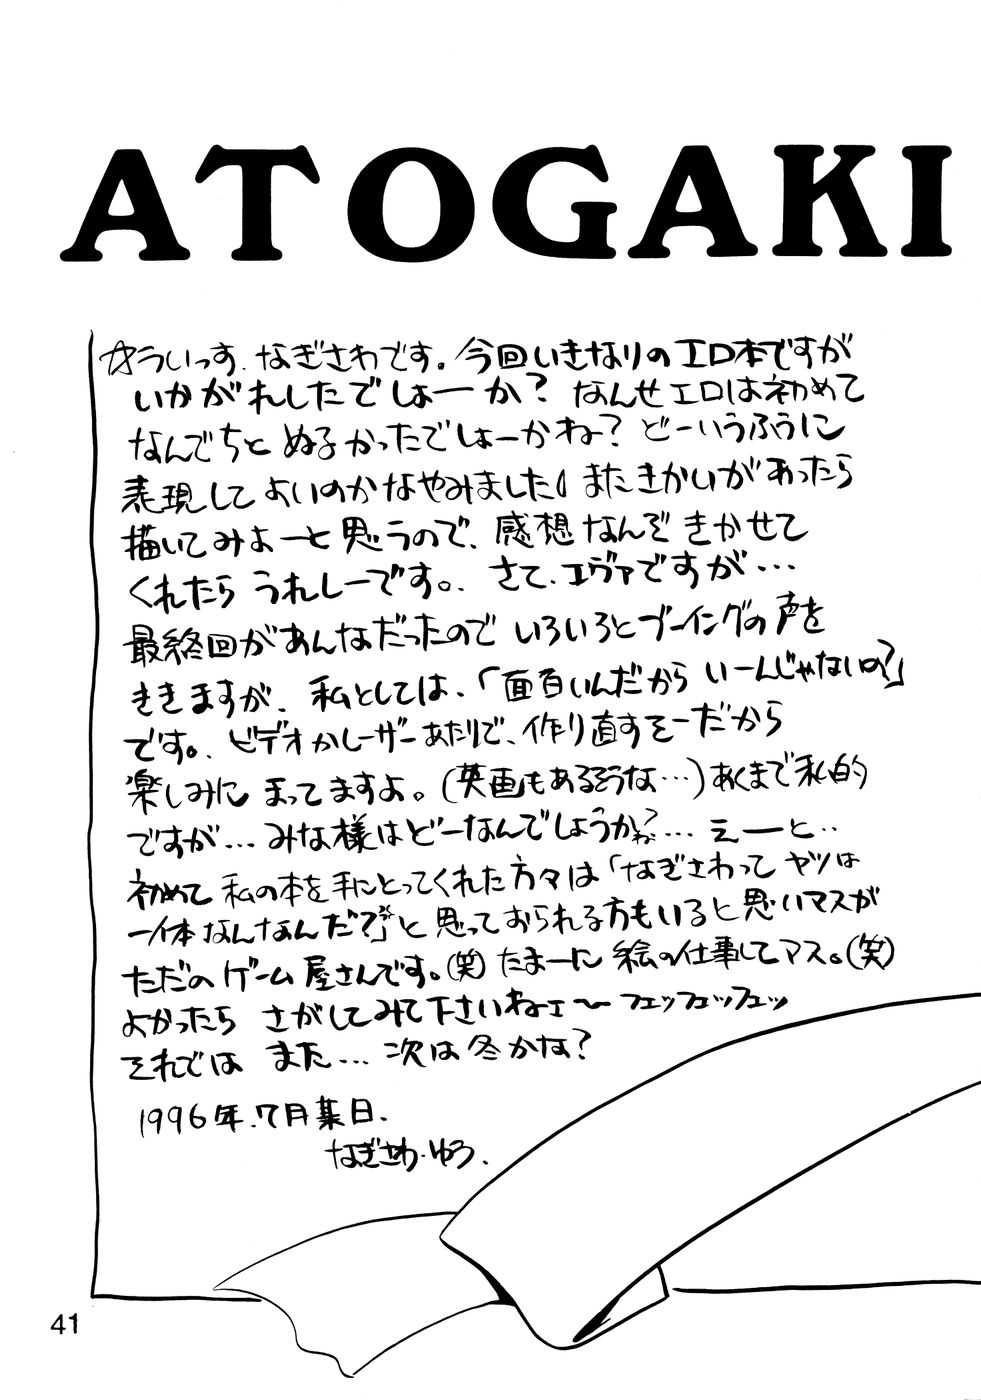 ATOGAKI
ういっす、なぎさわです。今回いきなりのエロ本ですが
いかがれしたでしょーか？なんせエロは初めて
なんでちと ぬるかったでしょーかね？どーいうふうに
表現してよいのかなやみました。またきかいがあったら
描いてみよーと思うので、感想なんぞきかせて
くれたら うれしーです。さて、エヴァですが…
最終回があんなだったので いろいろとブーイングの声を
ききますが、私としては、「面白いんだから いーんじゃないの？」
です。ビデオかレーザーあたりで、作り直すそーだから
楽しみに まってますよ。(英画もあるそうな…)あくまで私的
ですが…みな様はどーなんでしょうかね？…えーと‥
初めて 私の本を手にとってくれた方々は「なぎさわって ヤツは
一体なんなんだ？」と思っておられる方もいると思いマスが
ただのゲーム屋さんです。(笑)たまーに 絵の仕事してマス。(笑)
よかったら さがしてみて下さいねェ〜フェッフェッフェッ
それでは また…次は冬かな？
1996年.7月某日.
なぎさわ・ゆう.
41